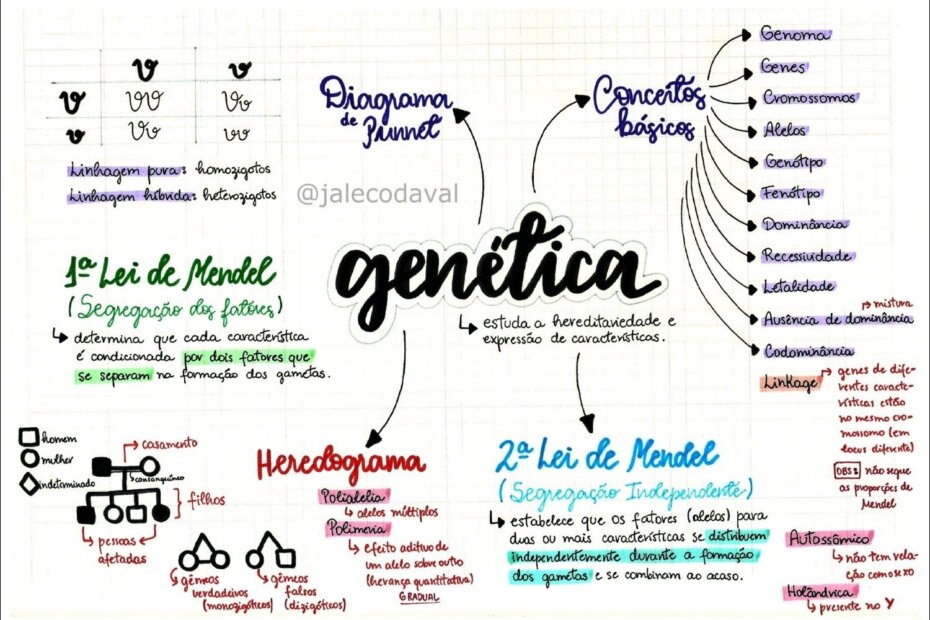 genética
↳ estuda a hereditariedade e
expressão de características.
@jalecodaval
Diagrama
de
Punnet
V v
V VV Vv
v Vv vv
Linhagem pura: homozigotos
Linhagem híbrida: heterozigotos
Conceitos
básicos
Genoma
Genes
Cromossomos
Alelos
Genótipo
Fenótipo
Dominância
Recessividade
Letalidade
Ausência de dominância
→ mistura
Codominância
Linkage
→ genes de dife-
rentes caracte-
rísticas estão
no mesmo cro-
mossomo (em
locus diferente)
OBS: não segue
as proporções de
Mendel
Autossômico
↳ não tem rela-
ção com o sexo
Holândrica
↳ presente no Y
1ª Lei de Mendel
(Segregação dos fatores)
↳ determina que cada característica
é condicionada por dois fatores que
se separam na formação dos gametas.
2ª Lei de Mendel
(Segregação Independente)
↳ estabelece que os fatores (alelos) para
duas ou mais características se distribuem
independentemente durante a formação
dos gametas e se combinam ao acaso.
Heredograma
Polialelia
↳ alelos múltiplos
Polimeria
↳ efeito aditivo de
um alelo sobre outro
(herança quantitativa)
GRADUAL
homem
mulher
indeterminado
casamento
consanguíneo
filhos
pessoas
afetadas
gêmeos
verdadeiros
(monozigóticos)
gêmeos
falsos
(dizigóticos)